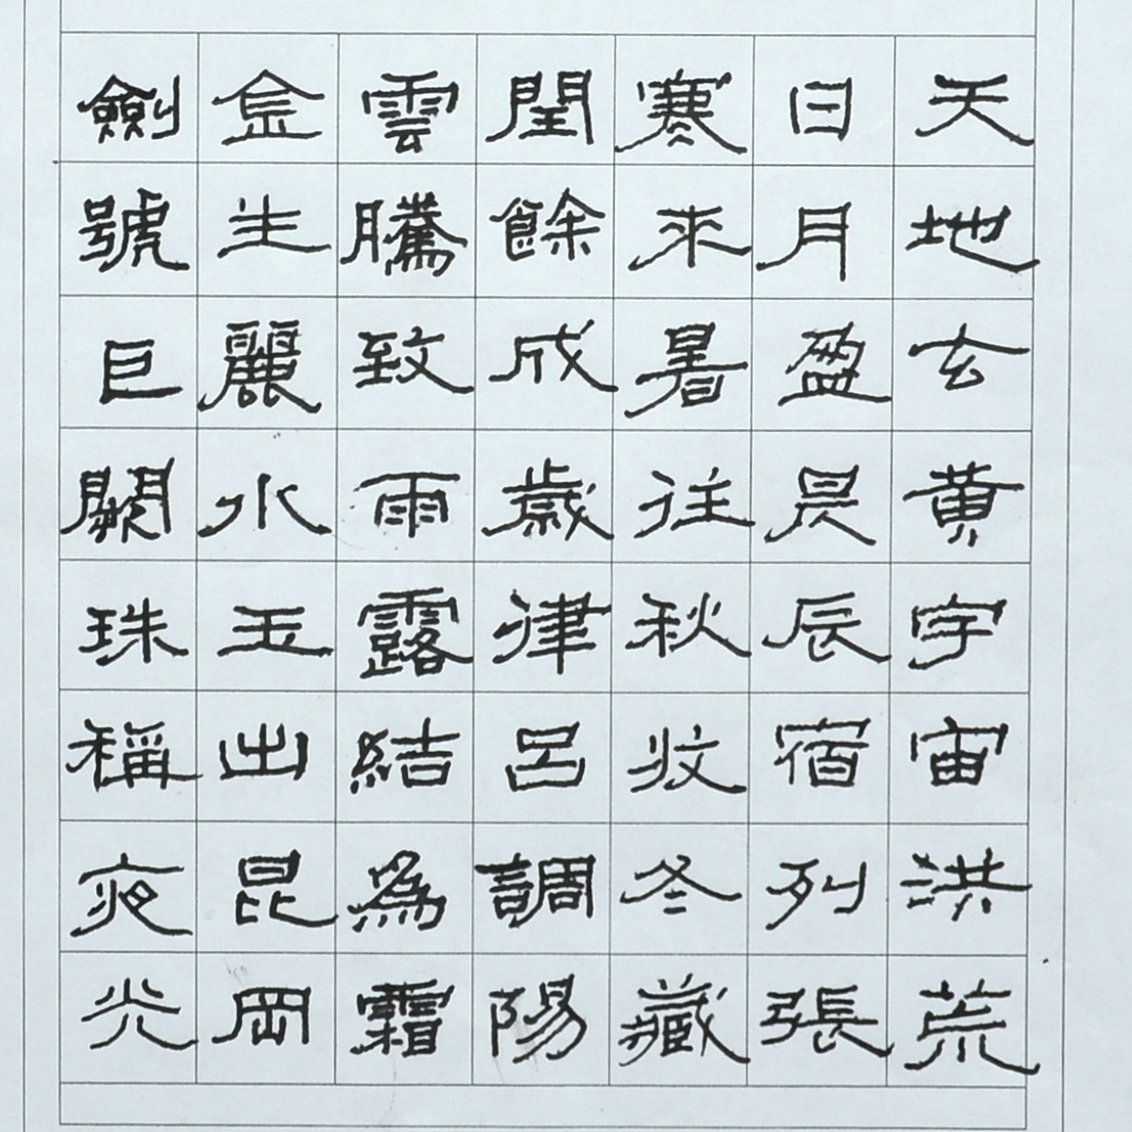 天地玄黃宇宙洪荒
日月盈昃辰宿列張
寒來暑往秋收冬藏
閏餘成歲律呂調陽
雲騰致雨露結為霜
金生麗水玉出昆岡
劍號巨闕珠稱夜光